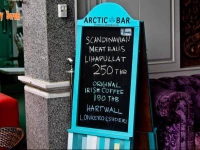 ARCTIC BAR
SCANDINAVIAN
MEAT BALLS
LIHAPULLAT
250 THB
ORIGINAL
IRISH COFFEE
190 THB
HARTWALL